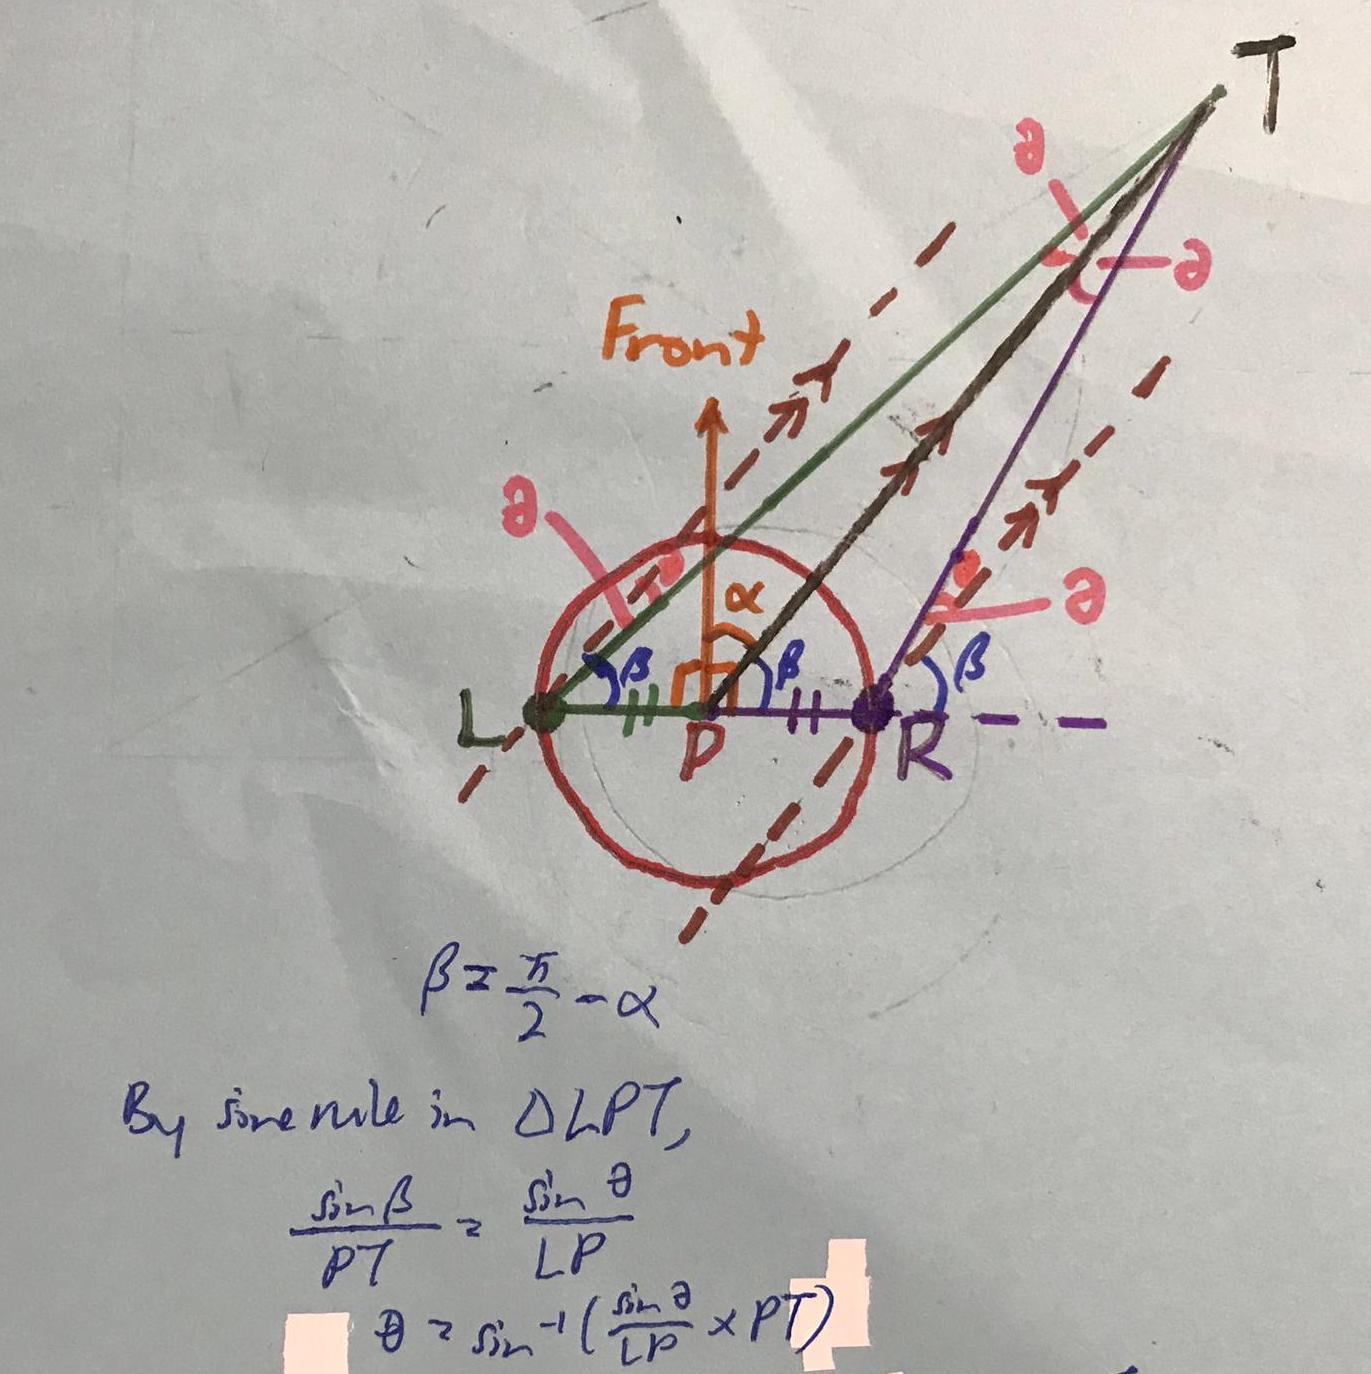 T
∂
∂
Front
∂
α
∂
β
β
β
L
P
R
β = π/2 - α
By sine rule in ΔLPT,
sin β / PT = sin θ / LP
θ = sin⁻¹ ( sin ∂ / LP × PT)